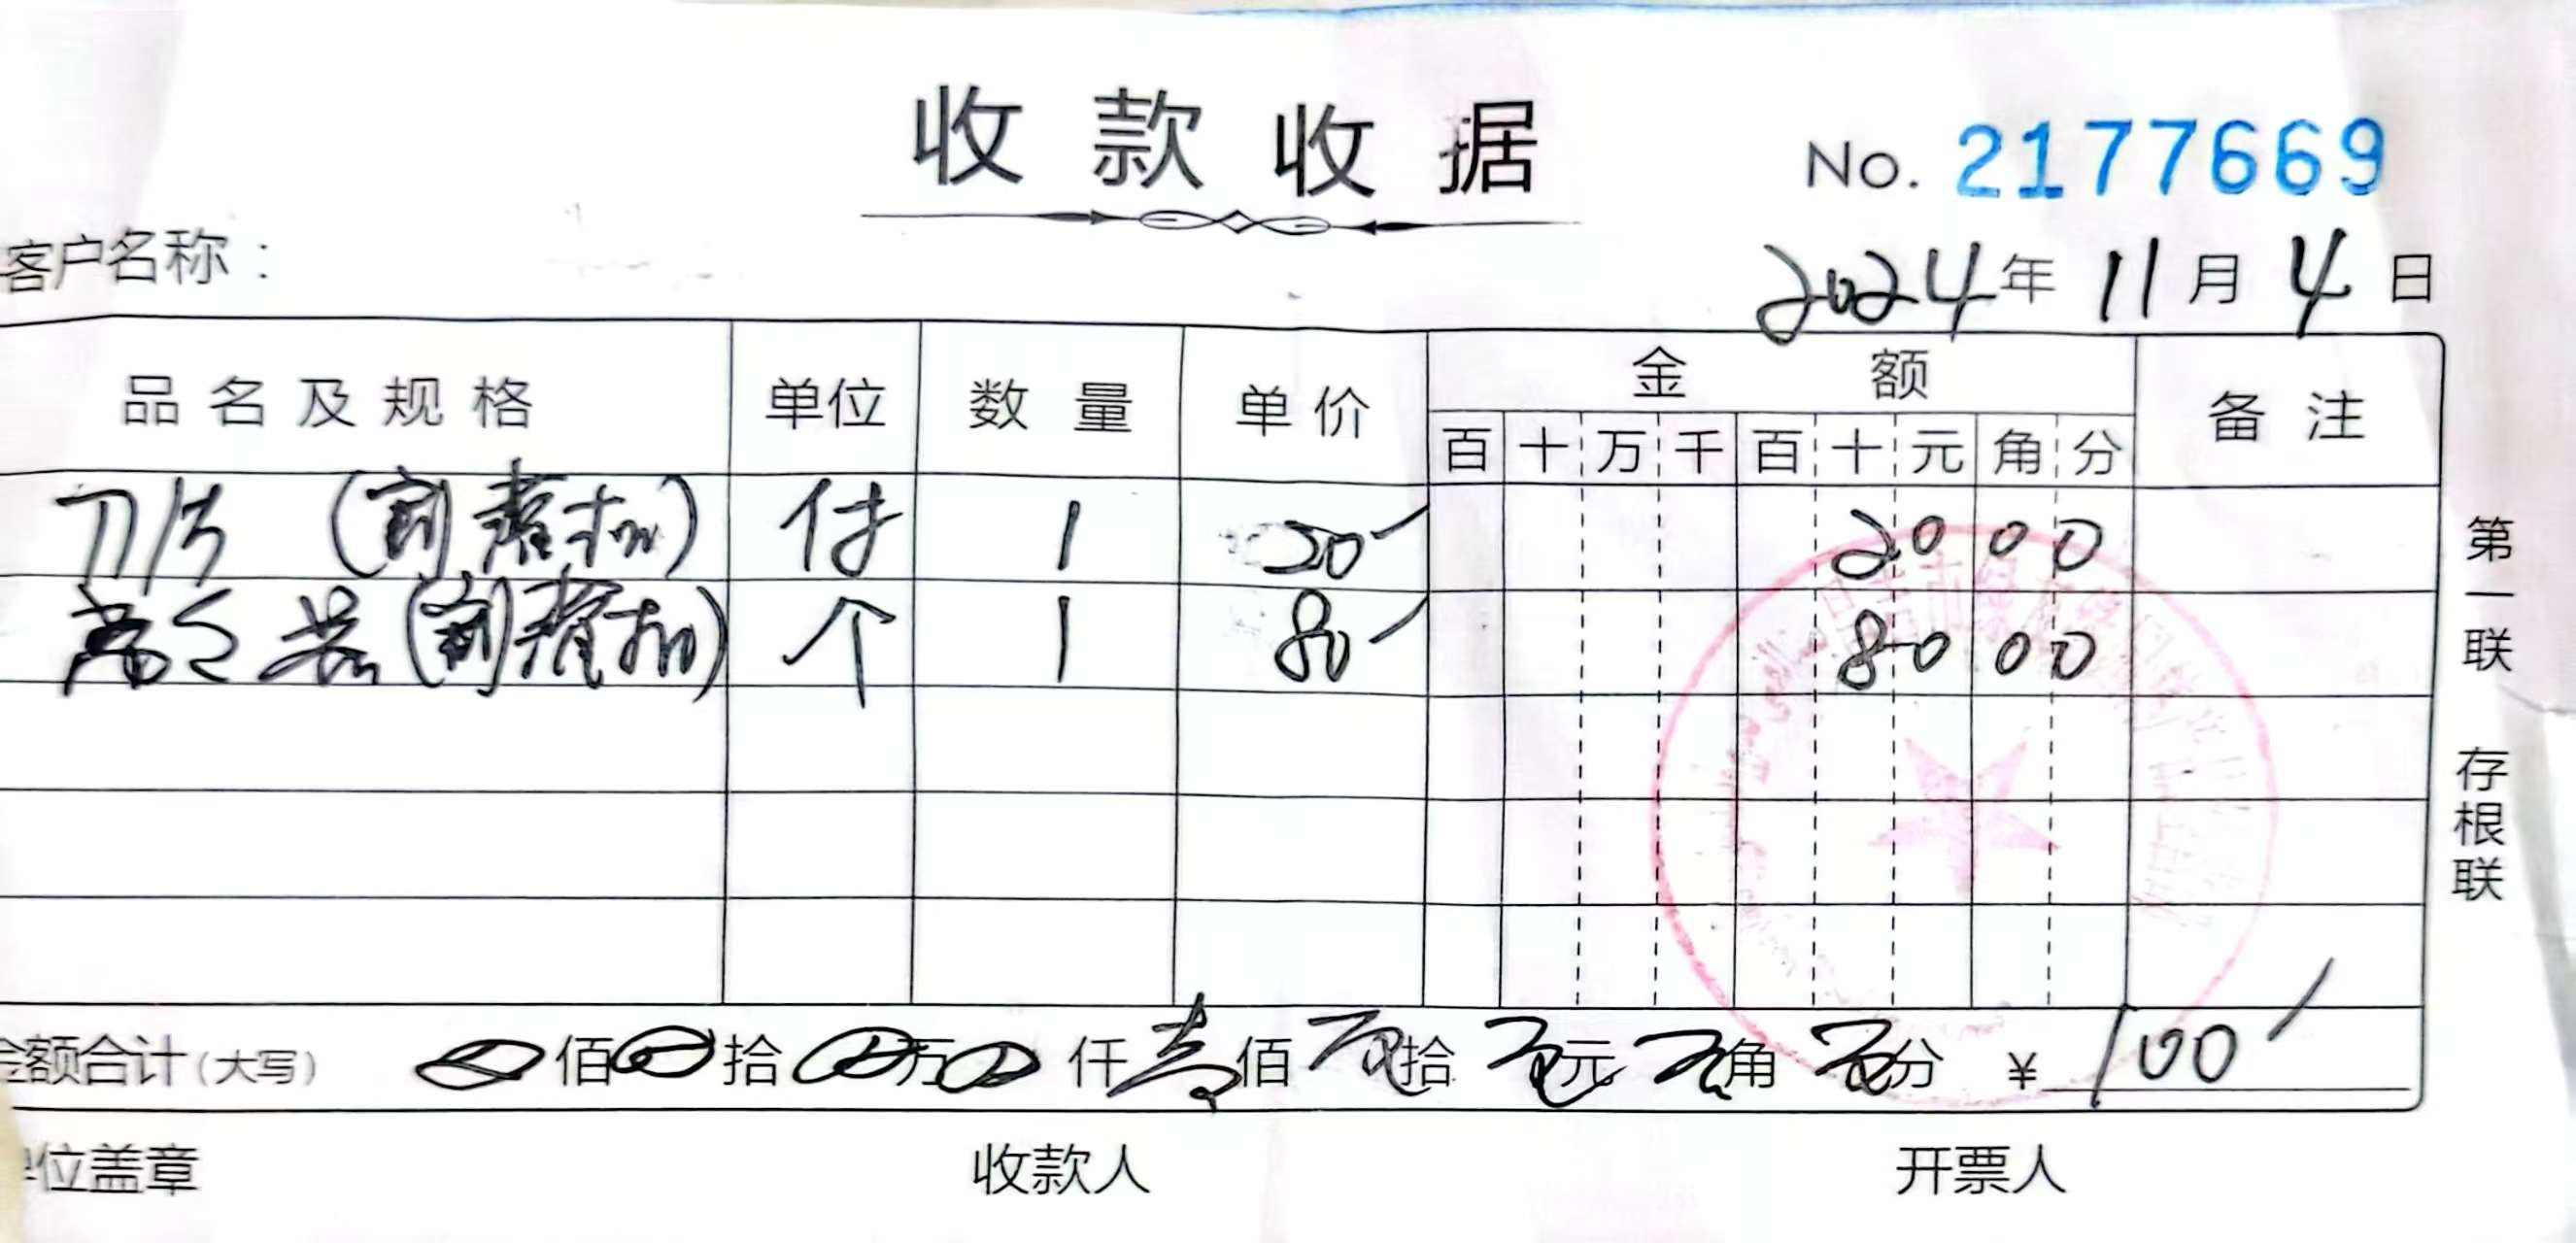 收款收据
No. 2177669
客户名称：
2024年11月4日
品名及规格 单位 数量 单价 金额 备注
百十万千百十元角分
刀片 (割草机) 付 1 20 2000
(割草机) 个 1 80 8000
金额合计(大写) 佰 拾 万 仟 壹佰 零拾 零元 零角 零分 ¥ 100
单位盖章 收款人 开票人
第一联 存根联